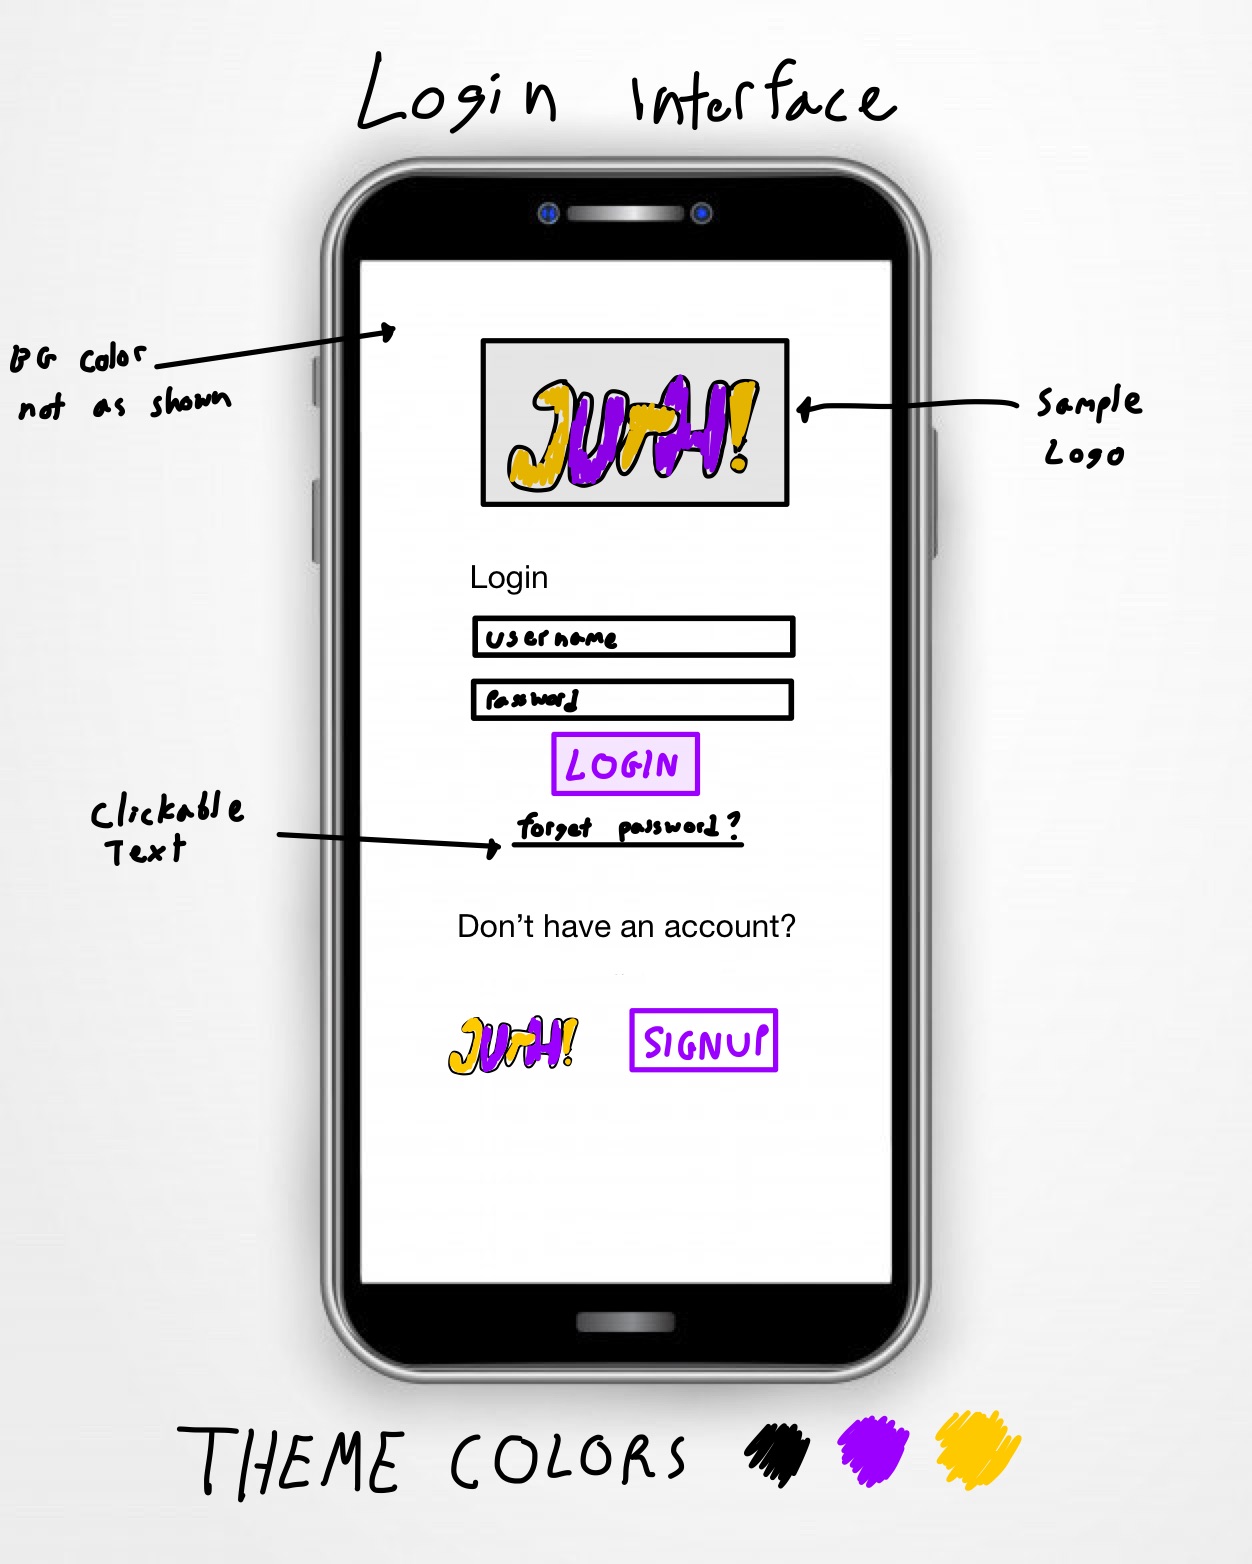 Login Interface
BG Color
not as shown
JUrH!
Sample
Logo
Login
username
Password
LOGIN
Clickable
Text
forget password?
Don't have an account?
JUrH!
SIGNUP
THEME COLORS